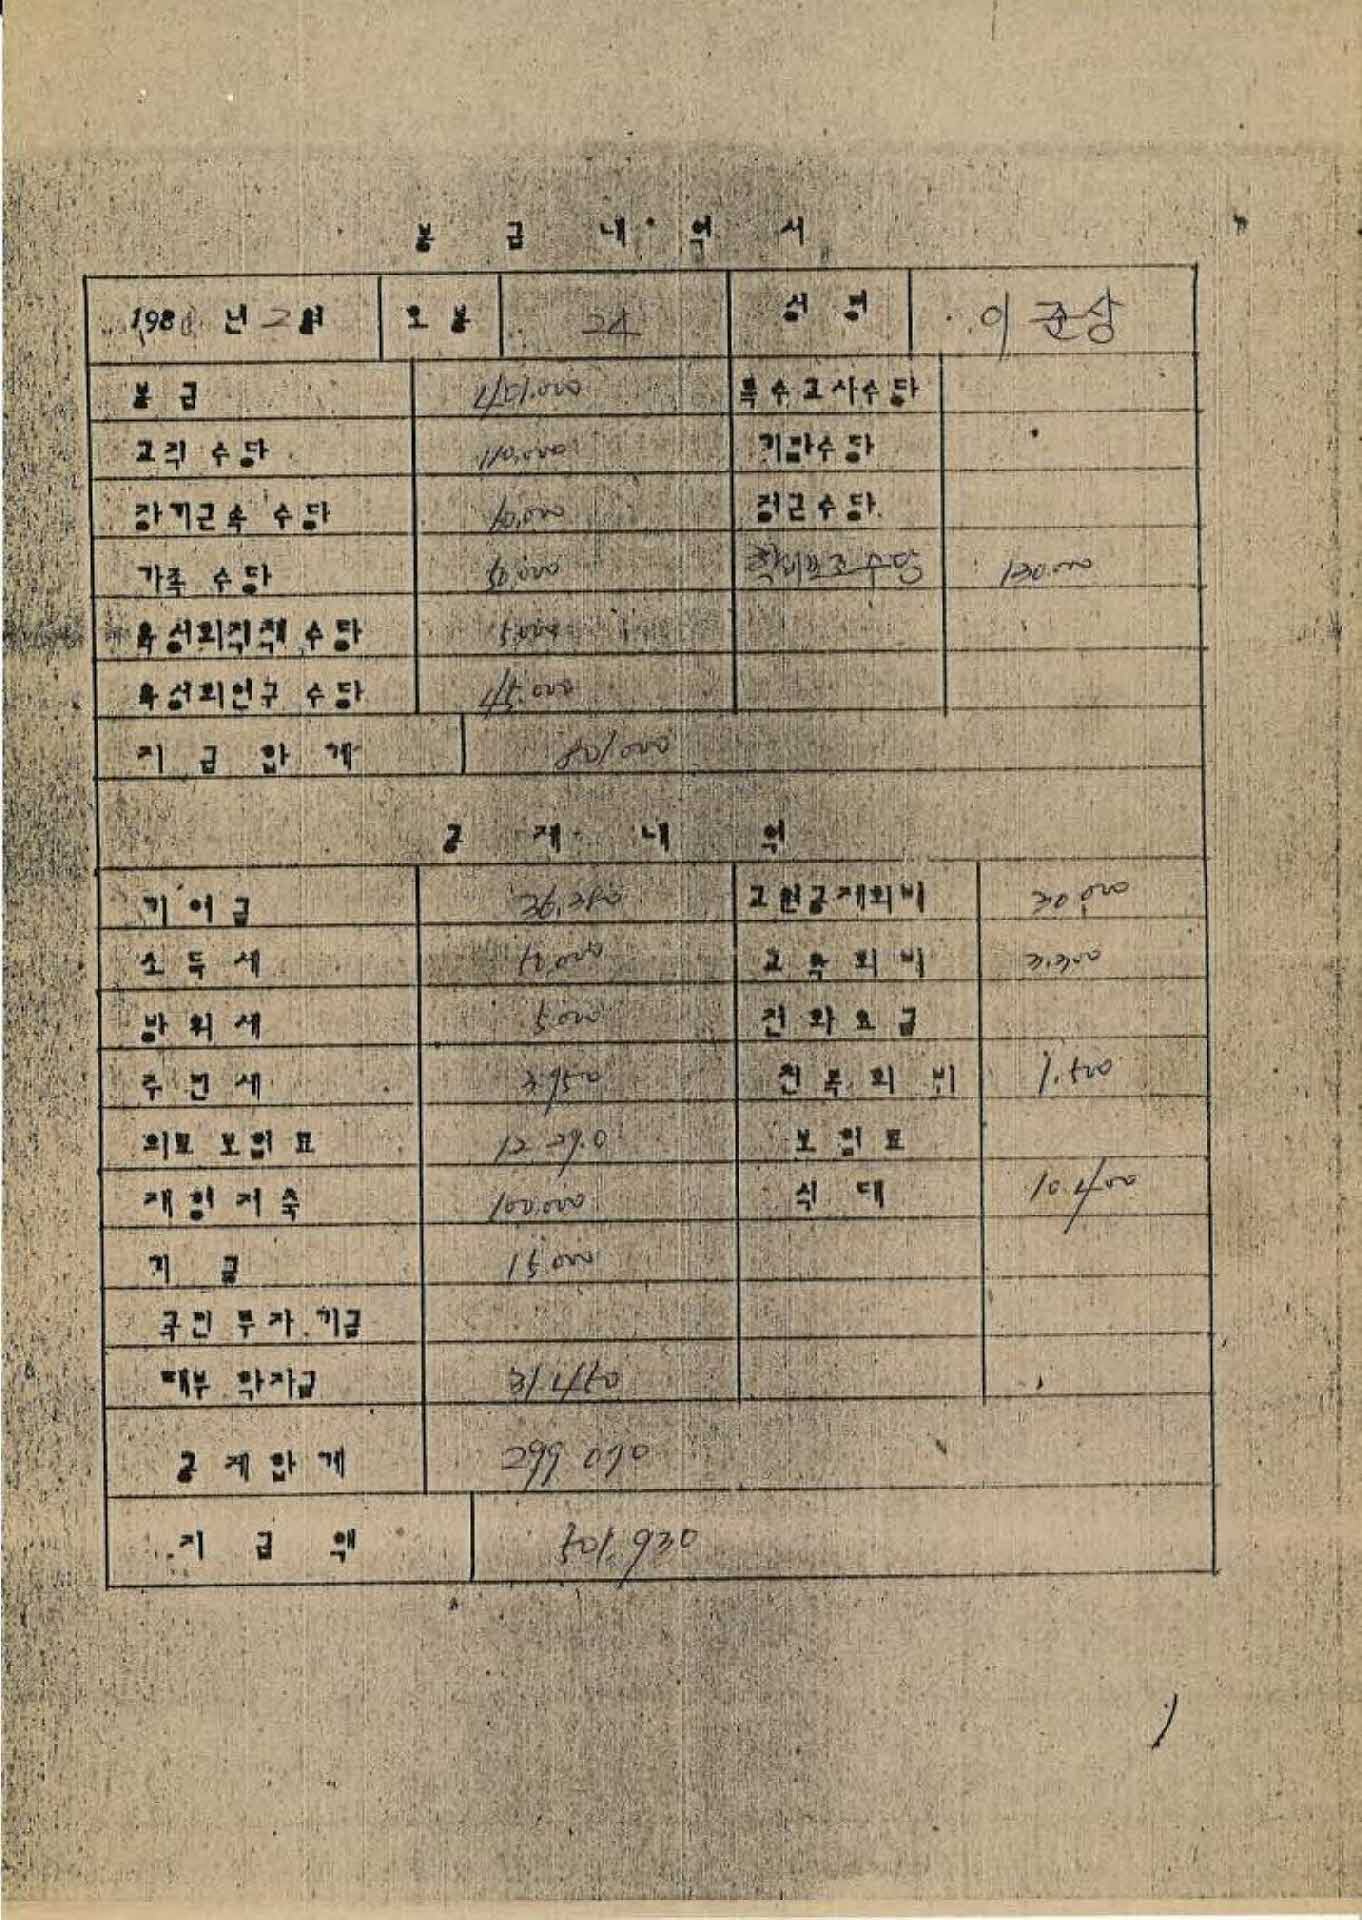 봉 급 내 역 서
198 년 2월 호 봉 24 성 명 이 준 상
봉 급 451.000 특수교사수당
교직 수당 110,000 기말수당
장기근속 수당 10,000 정근수당
가족 수당 50,000 학비보조수당 130.000
육성회직책 수당 5.000
육성회연구 수당 45.000
지 급 합 계 801000
공 제 내 역
기 여 급 36.280 교원공제회비 30.000
소 득 세 10.000 교 육 회 비 3.300
방 위 세 5.000 전 화 요 금
주 민 세 친 목 회 비 1.500
의료 보험 료 12.290 보 험 료
재 형 저 축 100.000 식 대 10.400
기 금 15.000
국민 투자 기금
대부 학자금
공 제 합 계 299.070
지 급 액 501.930